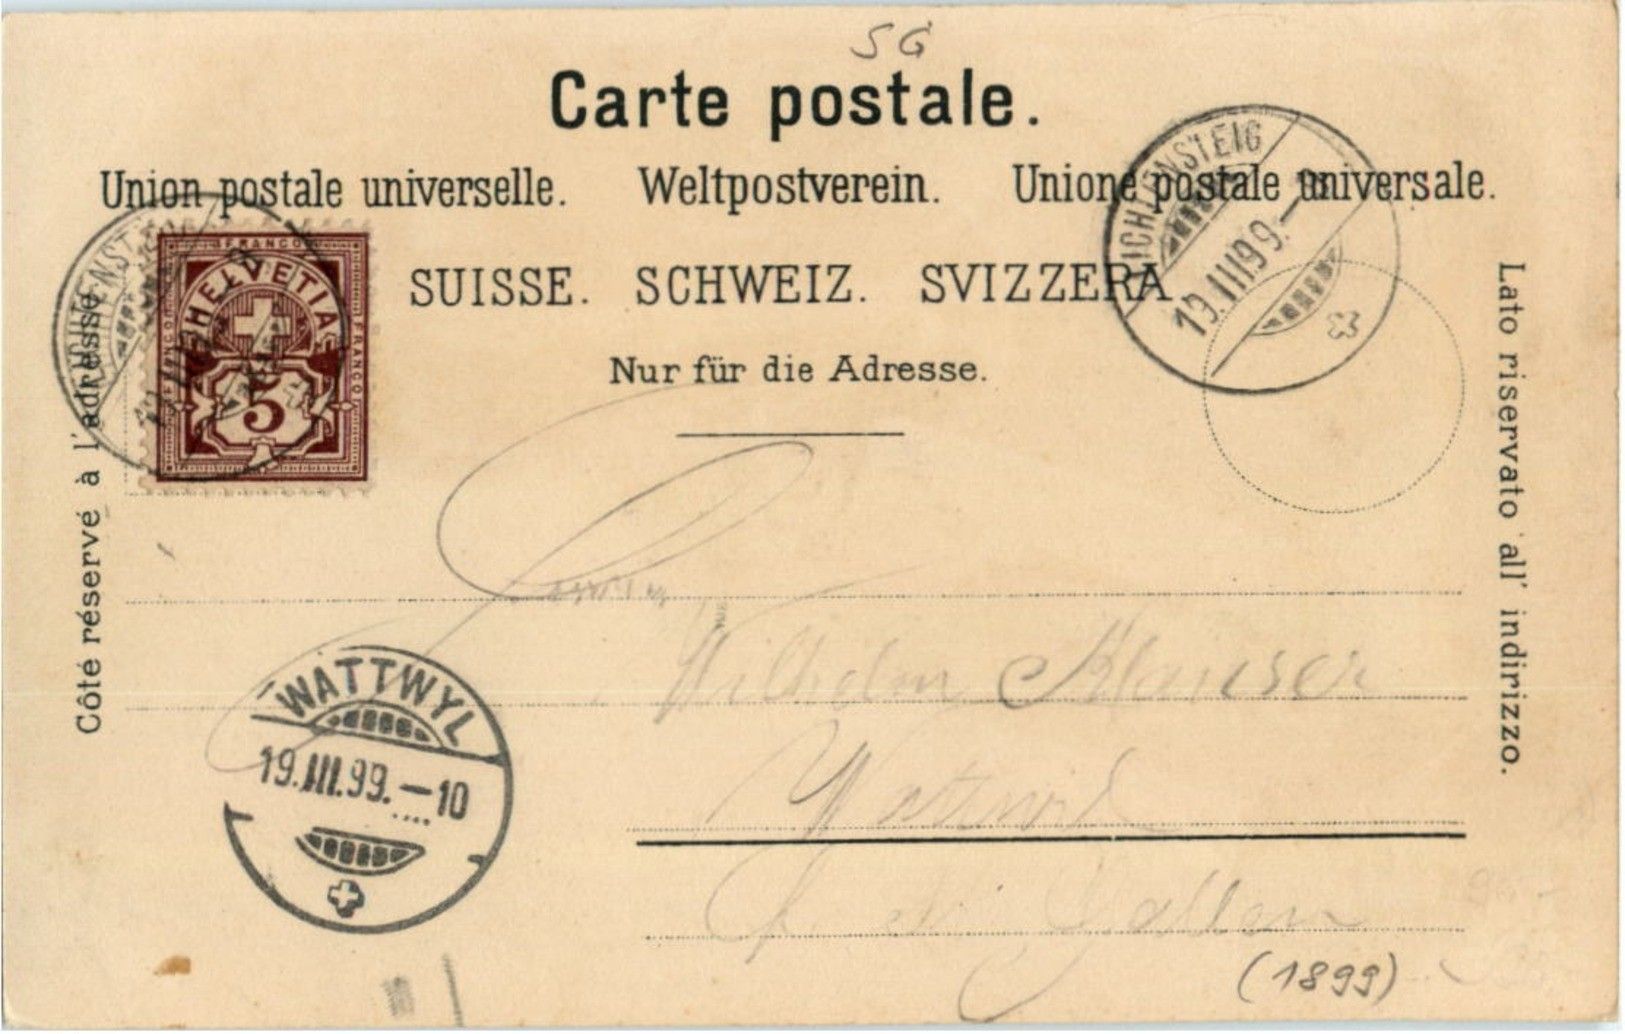 SG
Carte postale.
Union postale universelle. Weltpostverein. Unione postale universale.
SUISSE. SCHWEIZ. SVIZZERA
Nur für die Adresse.
Côté réservé à l'adresse
Lato riservato all' indirizzo.
FRANCO
HELVETIA
FRANCO
5
LICHTENSTEIG
19.III.99.
LICHTENSTEIG
WATTWYL
19.III.99.–10
Wilhelm Klauser
Gallen
(1899)